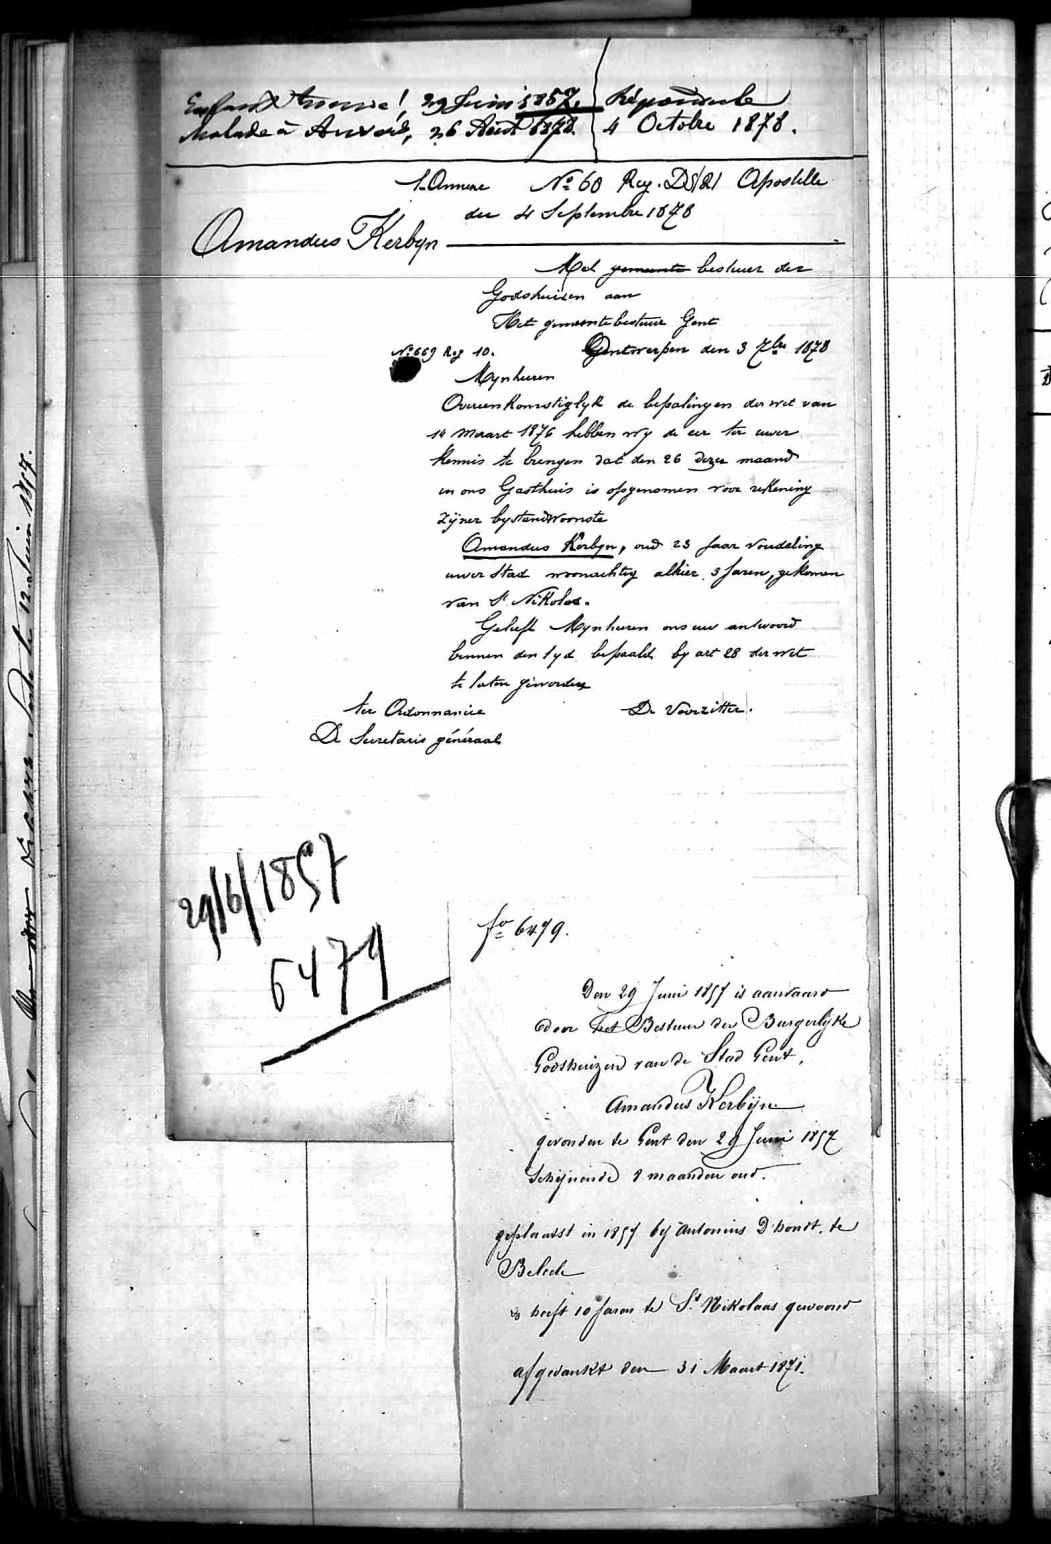 Enfant trouvé! 29 Juin 1857. Répondu le
Malade à Anvers, 26 Août 1878. 4 Octobre 1878.
1 Annexe No 60 Reg. D8/21 Apostille
der 4 Septembre 1878
Amandus Kerbyn
Het gemeente bestuur der
Godshuizen aan
Het gemeentebestuur Gent
No 669 Reg 10. Antwerpen den 3 7bre 1878
Mynheeren
Overeenkomstiglyk de bepalingen der wet van
14 Maart 1876 hebben wy de eer ter uwer
kennis te brengen dat den 26 dezer maand
in ons Gasthuis is opgenomen voor rekening
zijner bystandwoonste
Amandus Kerbyn, oud 23 Jaar vondeling
uwer Stad woonachtig alhier 3 Jaren, gekomen
van St Nikolas.
Gelieft Mynheeren ons uw antwoord
binnen den tyd bepaald by art 28 der wet
te laten geworden
ter Ordonnancie De Voorzitter.
De Secretaris général
29/6/1857
6479
fo 6479.
Den 29 Juni 1857 is aanvaard
door het Bestuur der Burgerlyke
Godshuizen van de Stad Gent,
Amandus Kerbijn
gevonden te Gent den 29 Juni 1857
Schijnende 8 maanden oud.
geplaatst in 1857 bij Antonius D'hondt, te
Belcele
heeft 10 Jaren te St Nikolaas gewoond
afgedankt den 31 Maart 1871.
12 Juin 1877.